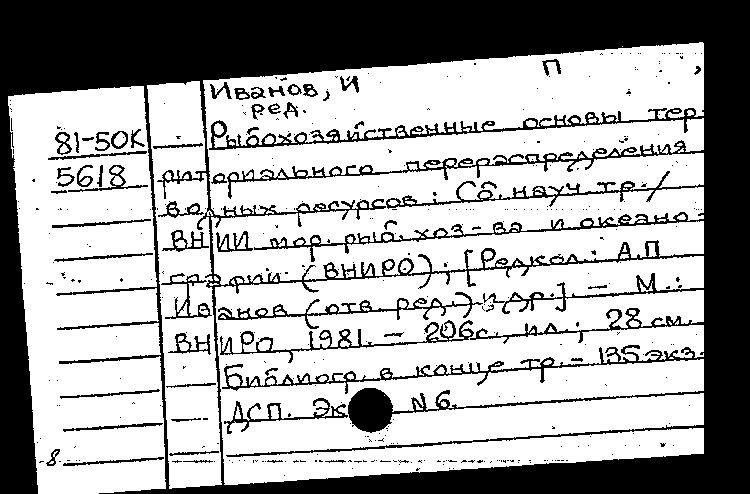 Иванов, И П ,
ред.
81-50К Рыбохозяйственные основы тер-
5618 риториального перераспределения
водных ресурсов: Сб. науч. тр. /
ВНИИ мор. рыб. хоз-ва и океано-
графии (ВНИРО); [Редкол.: А.П
Иванов (отв. ред.) и др.]. – М.:
ВНИРО, 1981. – 206с., ил.; 28 см.
Библиогр. в конце тр. – 135 экз.
ДСП. Эк N 6.
8